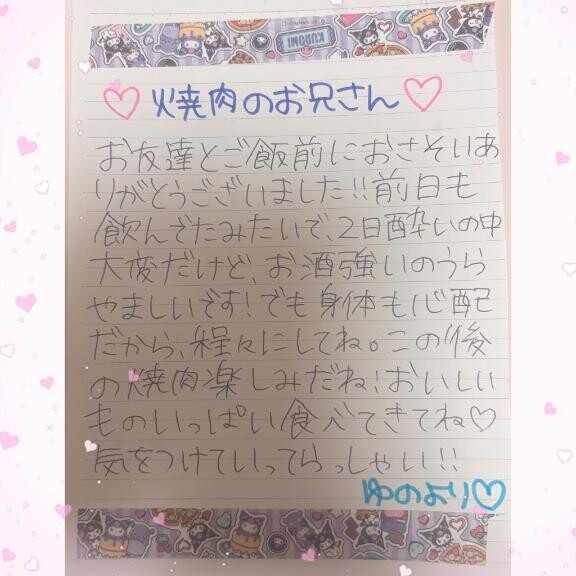 KUROMI
♡焼肉のお兄さん♡
お友達とご飯前におさそいあ
りがとうございました!!前日も
飲んでたみたいで、2日酔いの中
大変だけど、お酒強いのうら
やましいです!でも身体も心配
だから、程々にしてね。この後
の焼肉楽しみだね!おいしい
ものいっぱい食べてきてね♡
気をつけていってらっしゃい!!
ゆのより♡